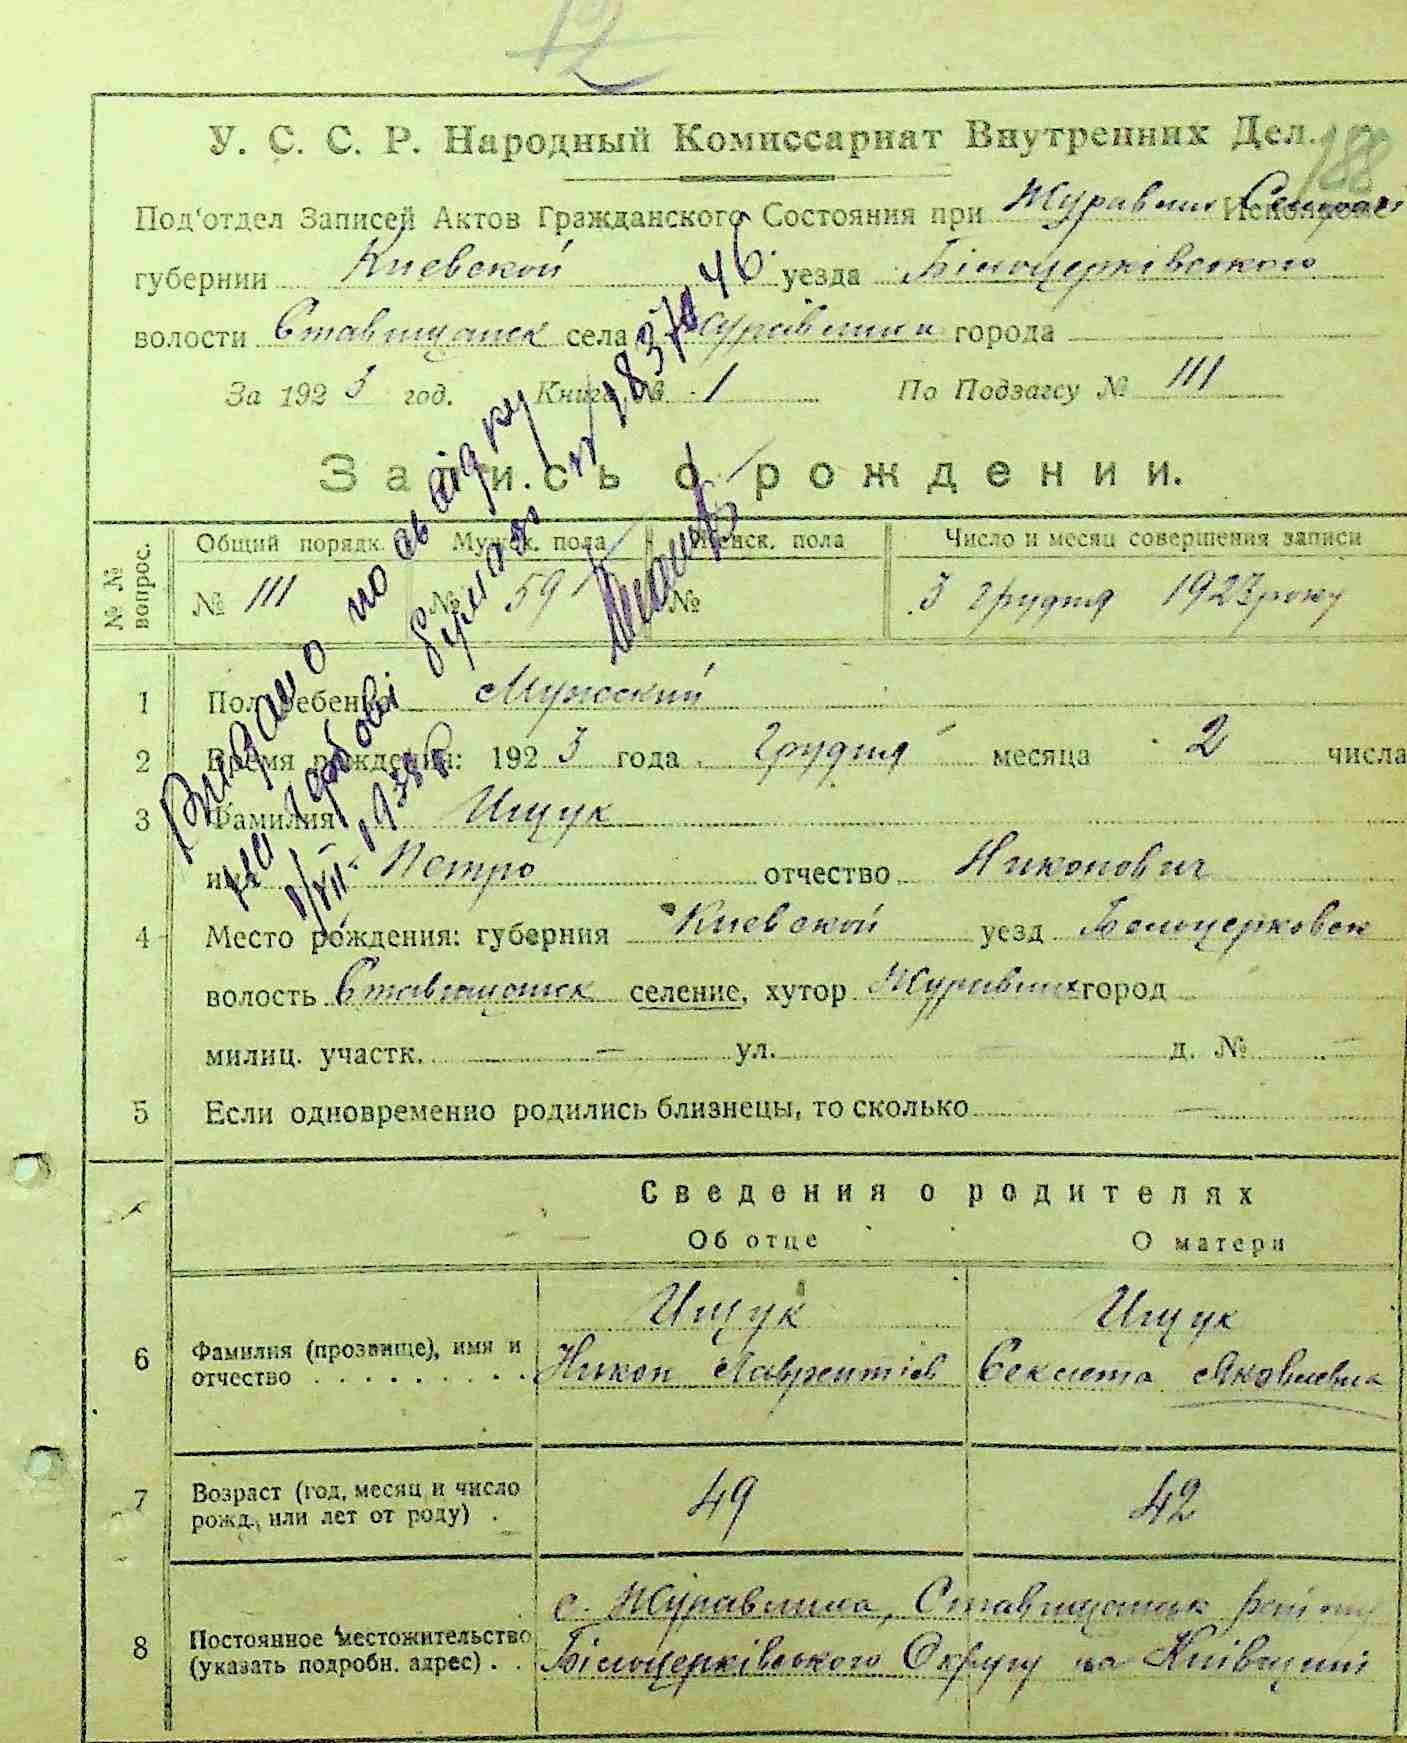 12
188
У. С. С. Р. Народный Комиссариат Внутренних Дел.
Под'отдел Записей Актов Гражданского Состояния при Журавлин
губернии Киевской уезда Білоцерківського
волости Ставищанск села Журавлина города
За 1923 год. Книга № 1 По Подзагсу № 111
Запись о рождении.
№№ вопрос. Общий порядк. Мужск. пола Женск. пола Число и месяц совершения записи
№ 111 № 59 № 3 грудня 1923 року
Видано по свідку
1/VIII 1938 р
1 Пол ребенка Мужский
2 Время рождения: 1923 года Грудня месяца 2 числа
3 Фамилия Ищук
имя Петро отчество Никонович
4 Место рождения: губерния Киевской уезд Белоцерковск
волость Ставищанск селение, хутор Журавлиха город
милиц. участк. — ул. — д. № —
5 Если одновременно родились близнецы, то сколько —
Сведения о родителях
Об отце О матери
Ищук Ищук
6 Фамилия (прозвище), имя и
отчество . . . . . . . . . Никон Лаврентіев Секлета Яковлевна
7 Возраст (год, месяц и число
рожд., или лет от роду) . 49 42
с. Журавлиха, Ставищанск району
8 Постоянное местожительство
(указать подробн. адрес) . . Білоцерківського Округу на Київщині